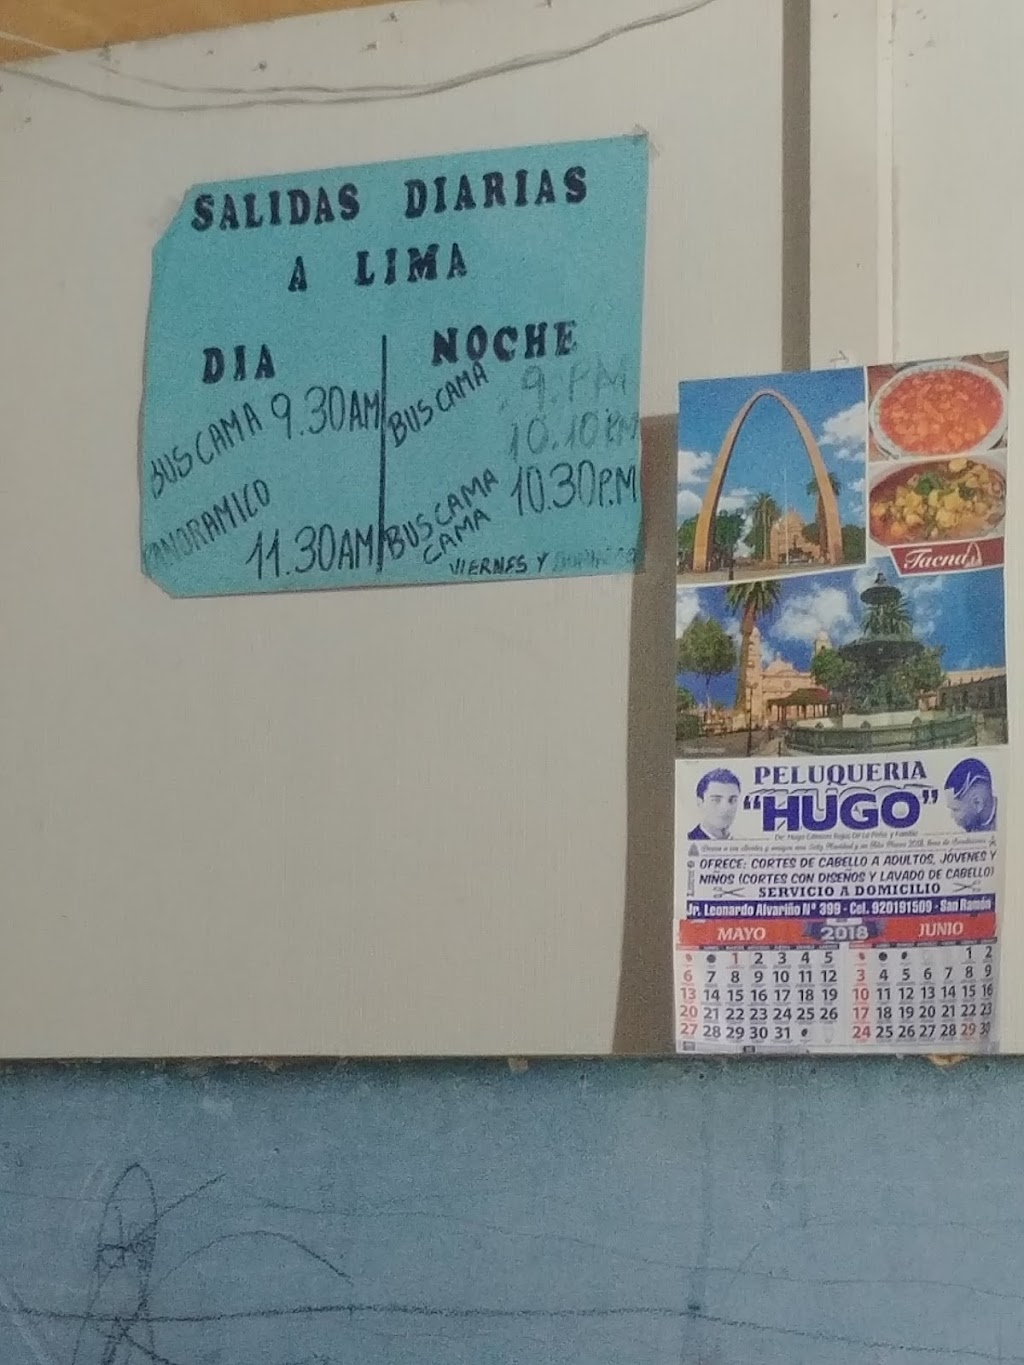 SALIDAS DIARIAS
A LIMA
DIA
BUS CAMA 9.30AM
PANORAMICO
11.30AM
NOCHE
BUS CAMA 9.PM
10.10PM
BUS CAMA 10.30P.M
CAMA
VIERNES Y
Tacna
PELUQUERIA
"HUGO"
OFRECE: CORTES DE CABELLO A ADULTOS, JÓVENES Y
NIÑOS (CORTES CON DISEÑOS Y LAVADO DE CABELLO)
SERVICIO A DOMICILIO
Jr. Leonardo Alvariño Nº 399 - Cel. 920191509 - San Ramón
MAYO 2018 JUNIO
1 2 3 4 5
6 7 8 9 10 11 12
13 14 15 16 17 18 19
20 21 22 23 24 25 26
27 28 29 30 31
1 2
3 4 5 6 7 8 9
10 11 12 13 14 15 16
17 18 19 20 21 22 23
24 25 26 27 28 29 30